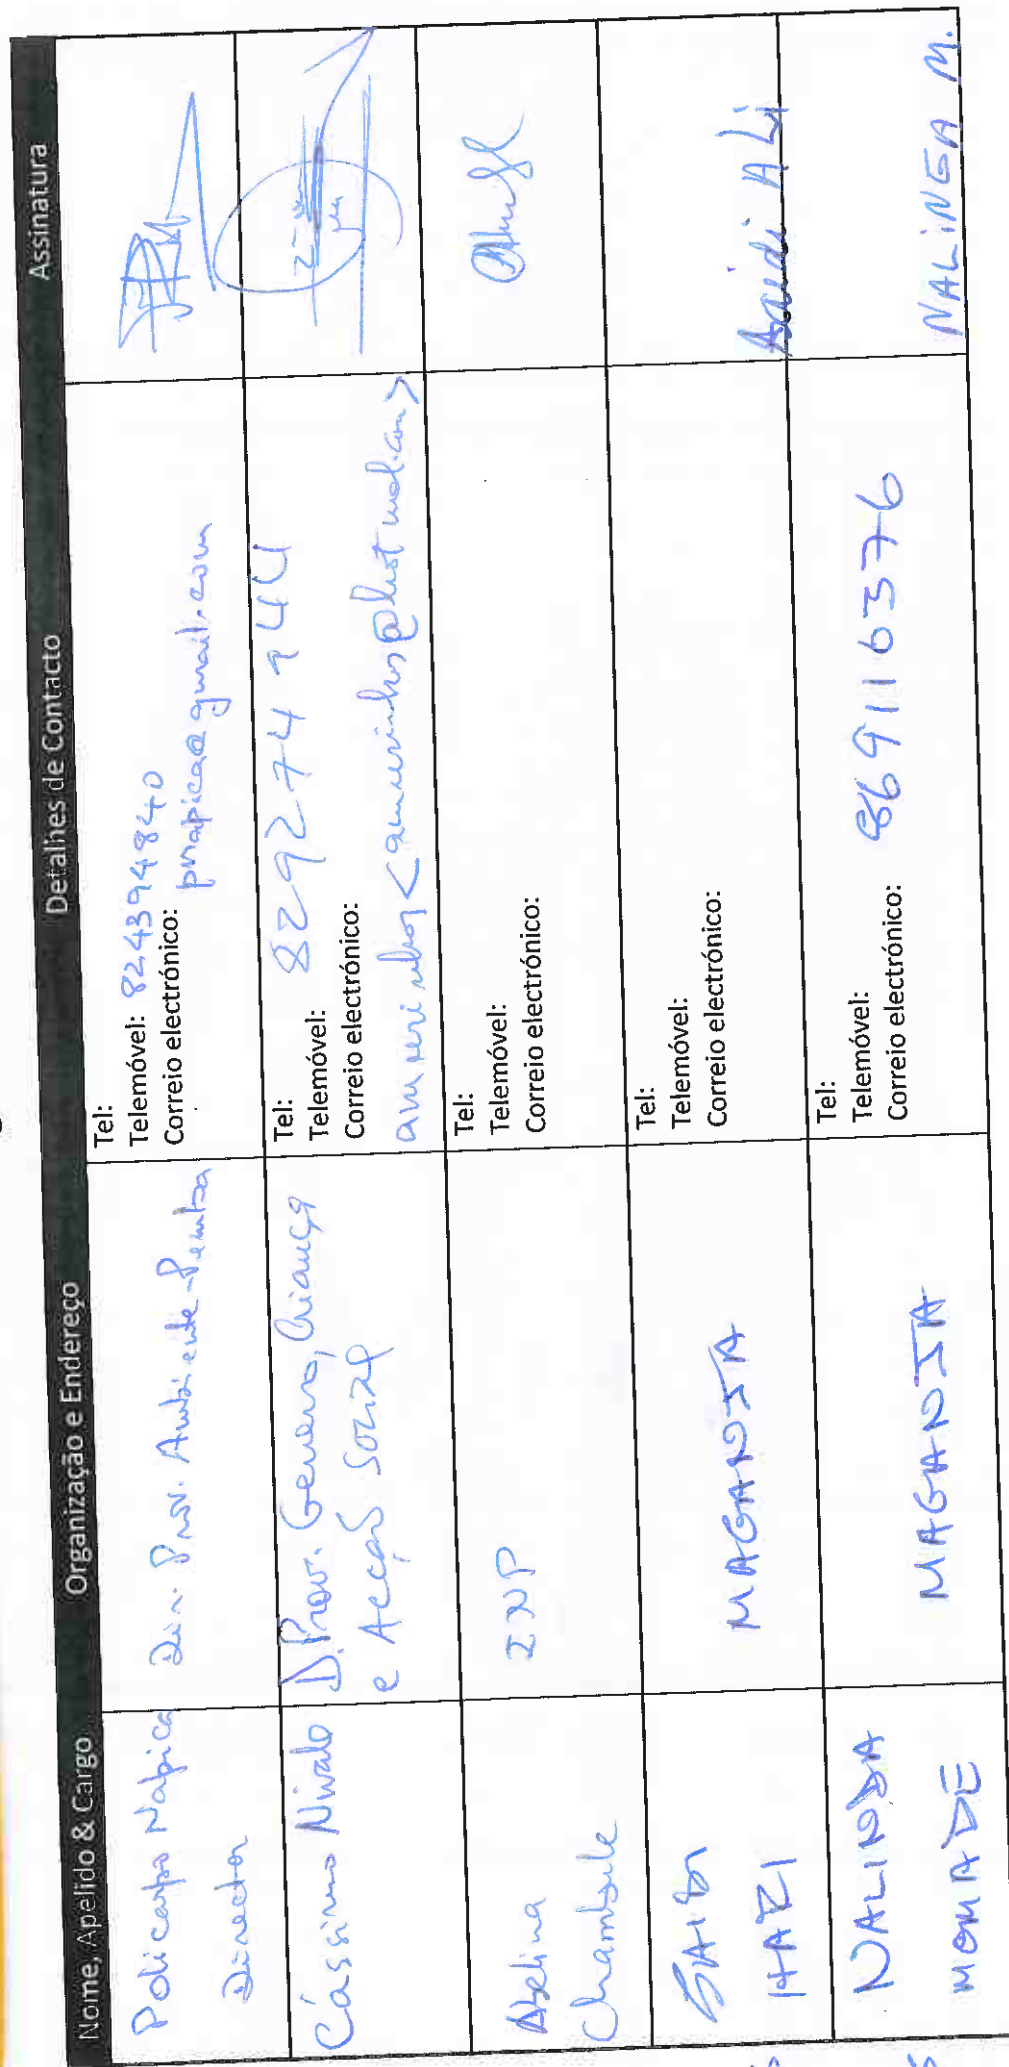 Nome, Apelido & Cargo Organização e Endereço Detalhes de Contacto Assinatura
Policarpo Napica
Director
Dir. Prov. Ambiente-Pemba
Tel:
Telemóvel: 824394840
Correio electrónico: pnapica@gmail.com
Cássimo Nivalo
D. Prov. Genero, Criança
e Acção Social
Tel:
Telemóvel: 829274944
Correio electrónico:
Abelina
Chambule
INP
Tel:
Telemóvel:
Correio electrónico:
SAIDI
HARI
MAGANJA
Tel:
Telemóvel:
Correio electrónico:
Saidi ALi
NALINDA
MOMADE
MAGANJA
Tel:
Telemóvel: 869116376
Correio electrónico:
NALiNGA M.